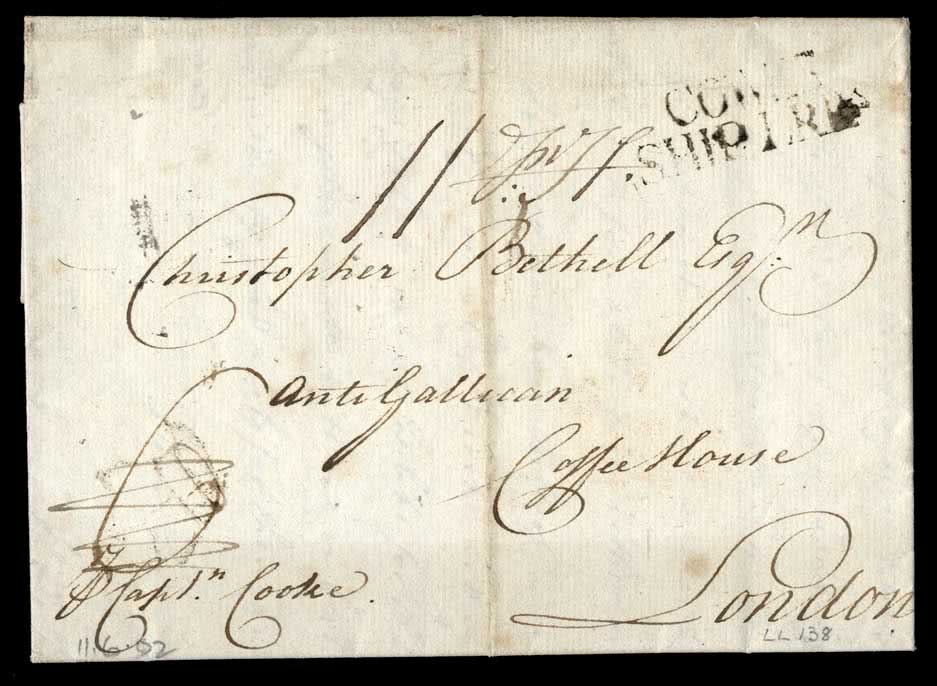 SHIP LRE
11
Christopher Bethell Esqr.
Anti Gallican
Coffee House
London
Capt.n Cooke.
11.6.02
LL 138